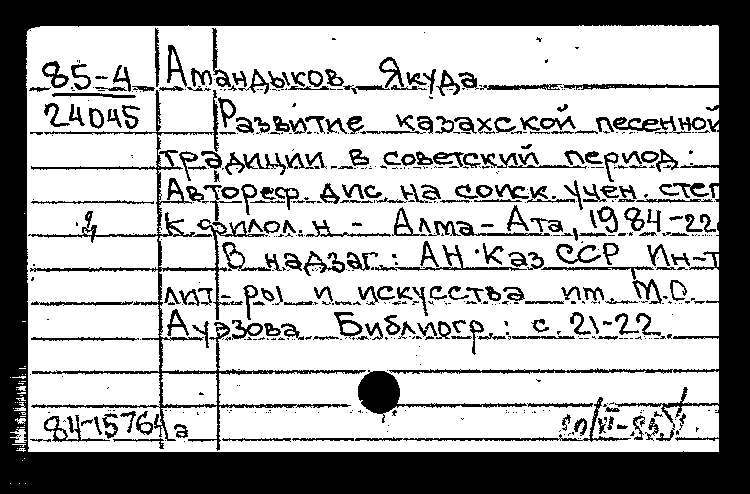 85-4 Амандыков, Якуда
24045 Развитие казахской песенной
традиции в советский период:
Автореф. дис. на соиск. учен. степ
к. филол. н. - Алма-Ата, 1984-22
В надзаг.: АН КазССР Ин-т
лит-ры и искусства им. М.О.
Ауэзова Библиогр.: с. 21-22
84-15764 а 20/VI-85